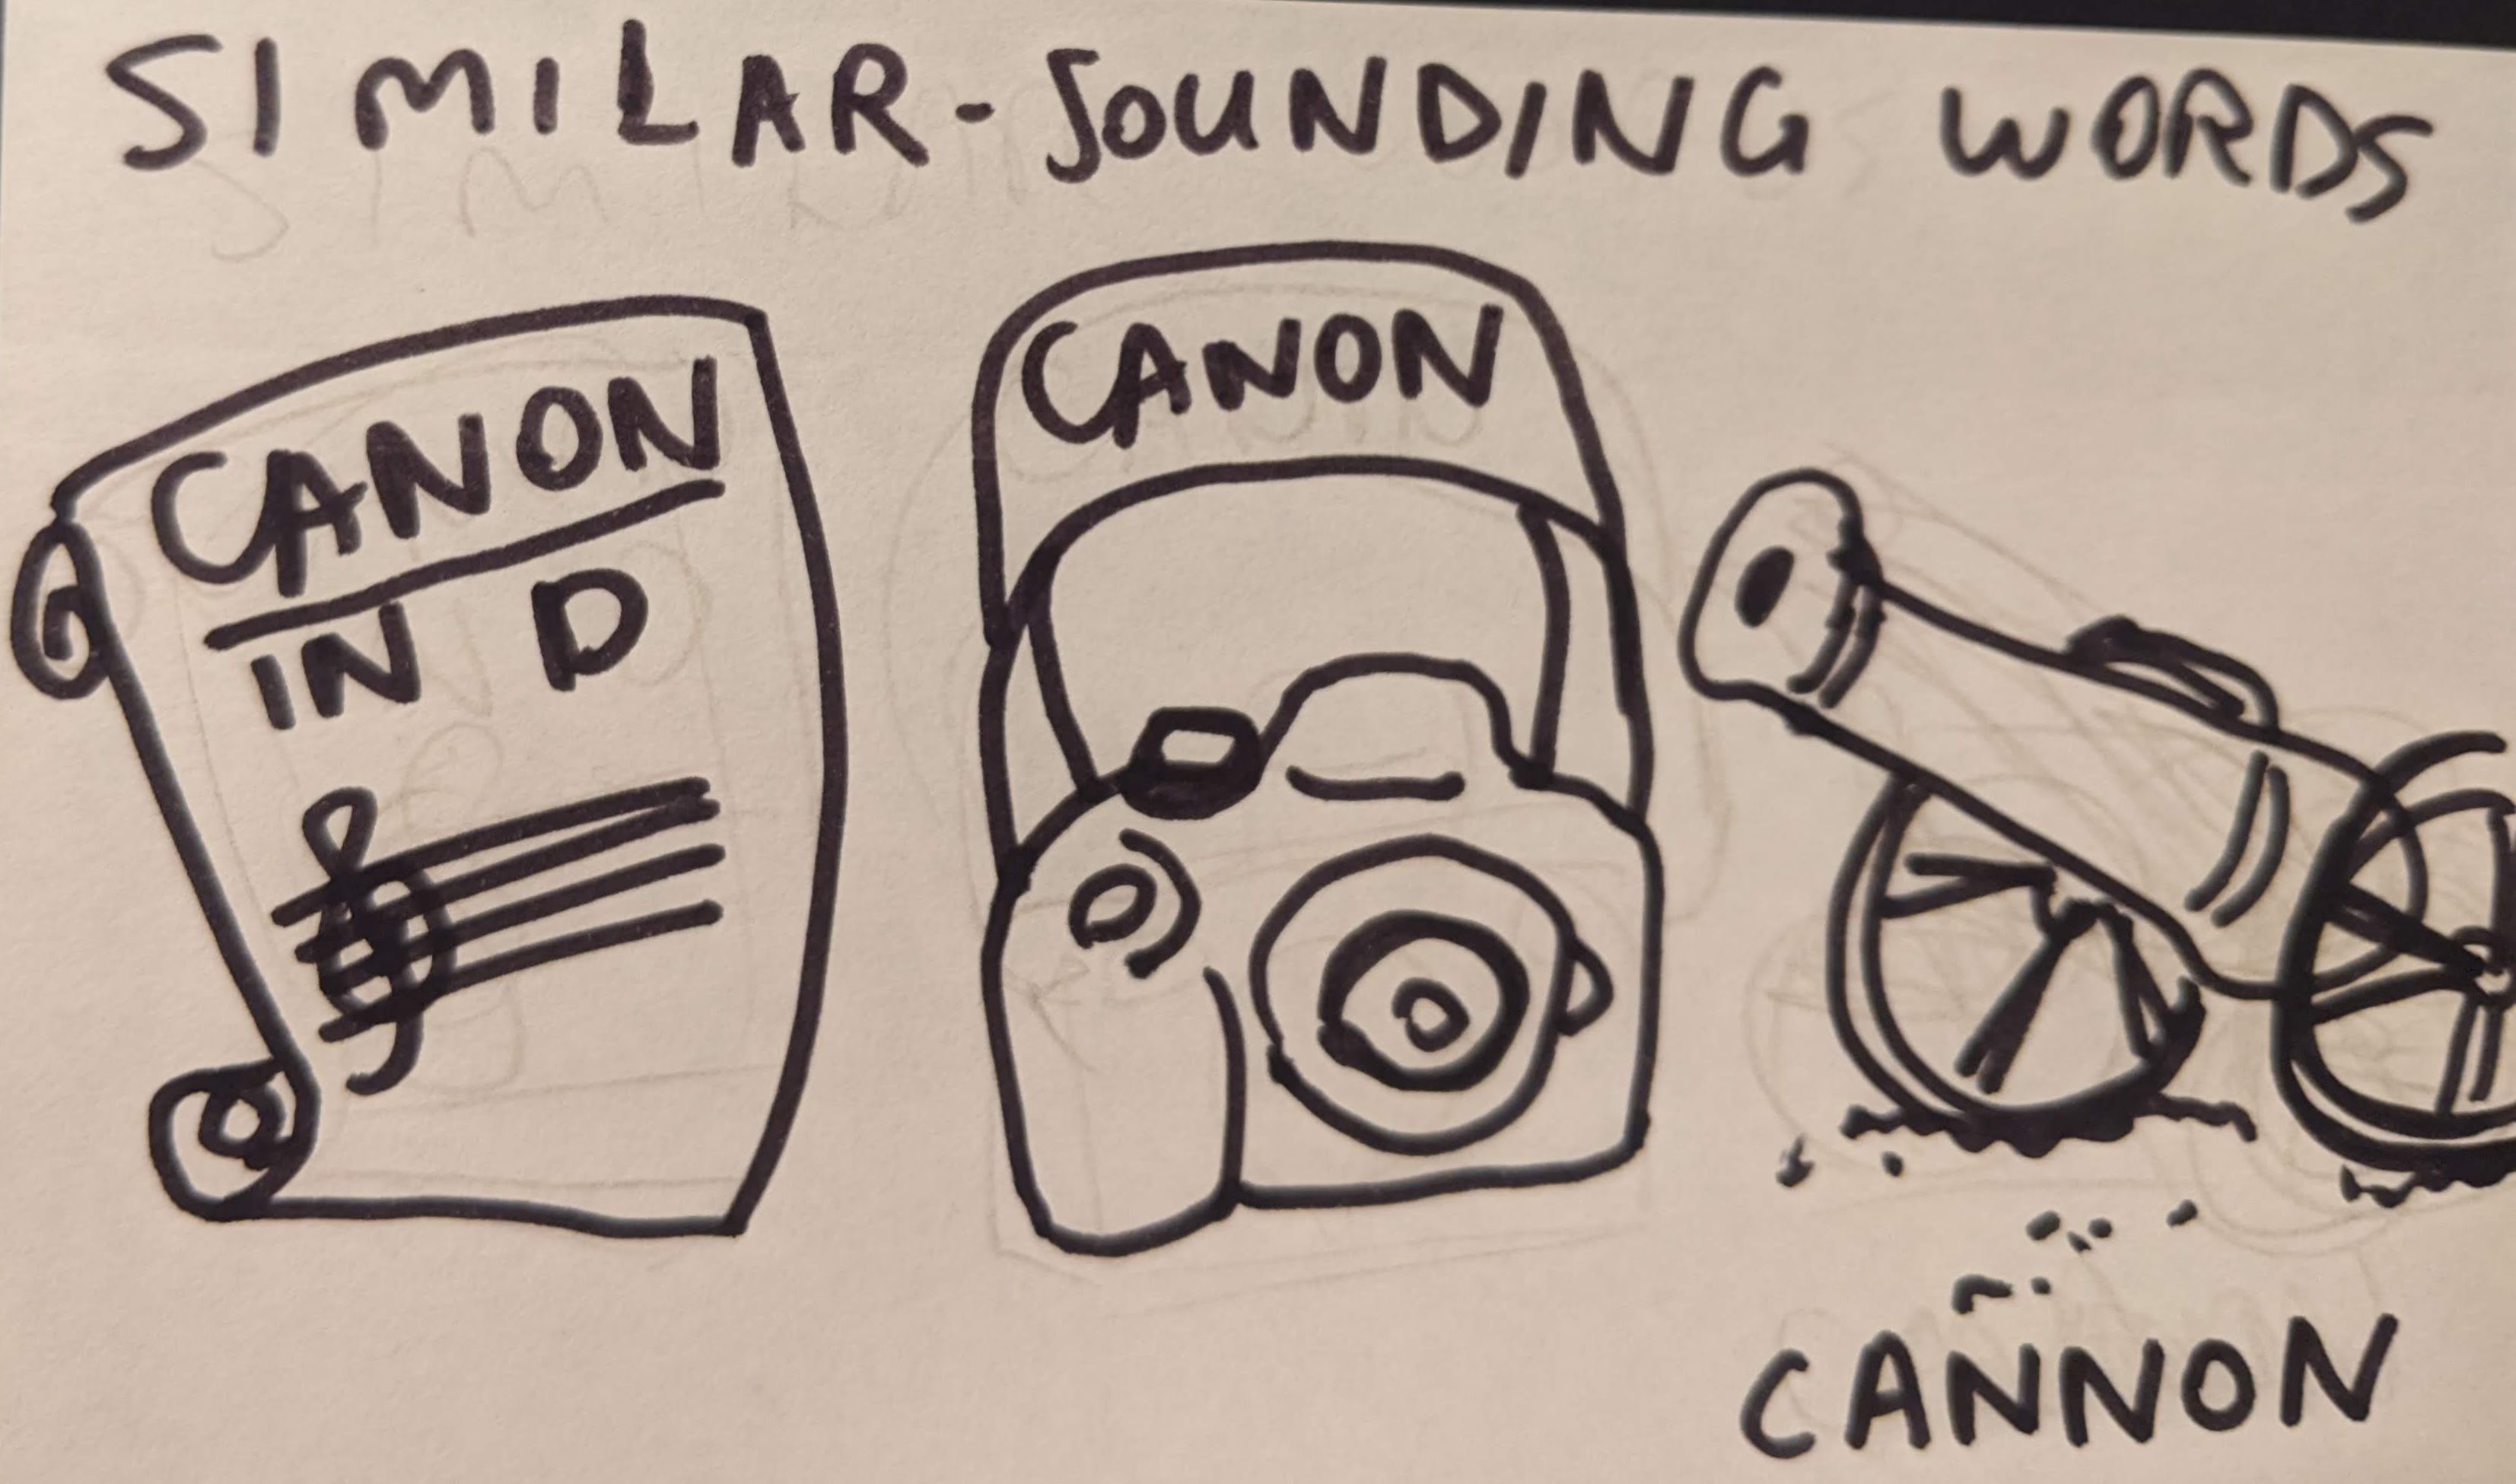 SIMILAR-SOUNDING WORDS
CANON
IN D
CANON
CANNON